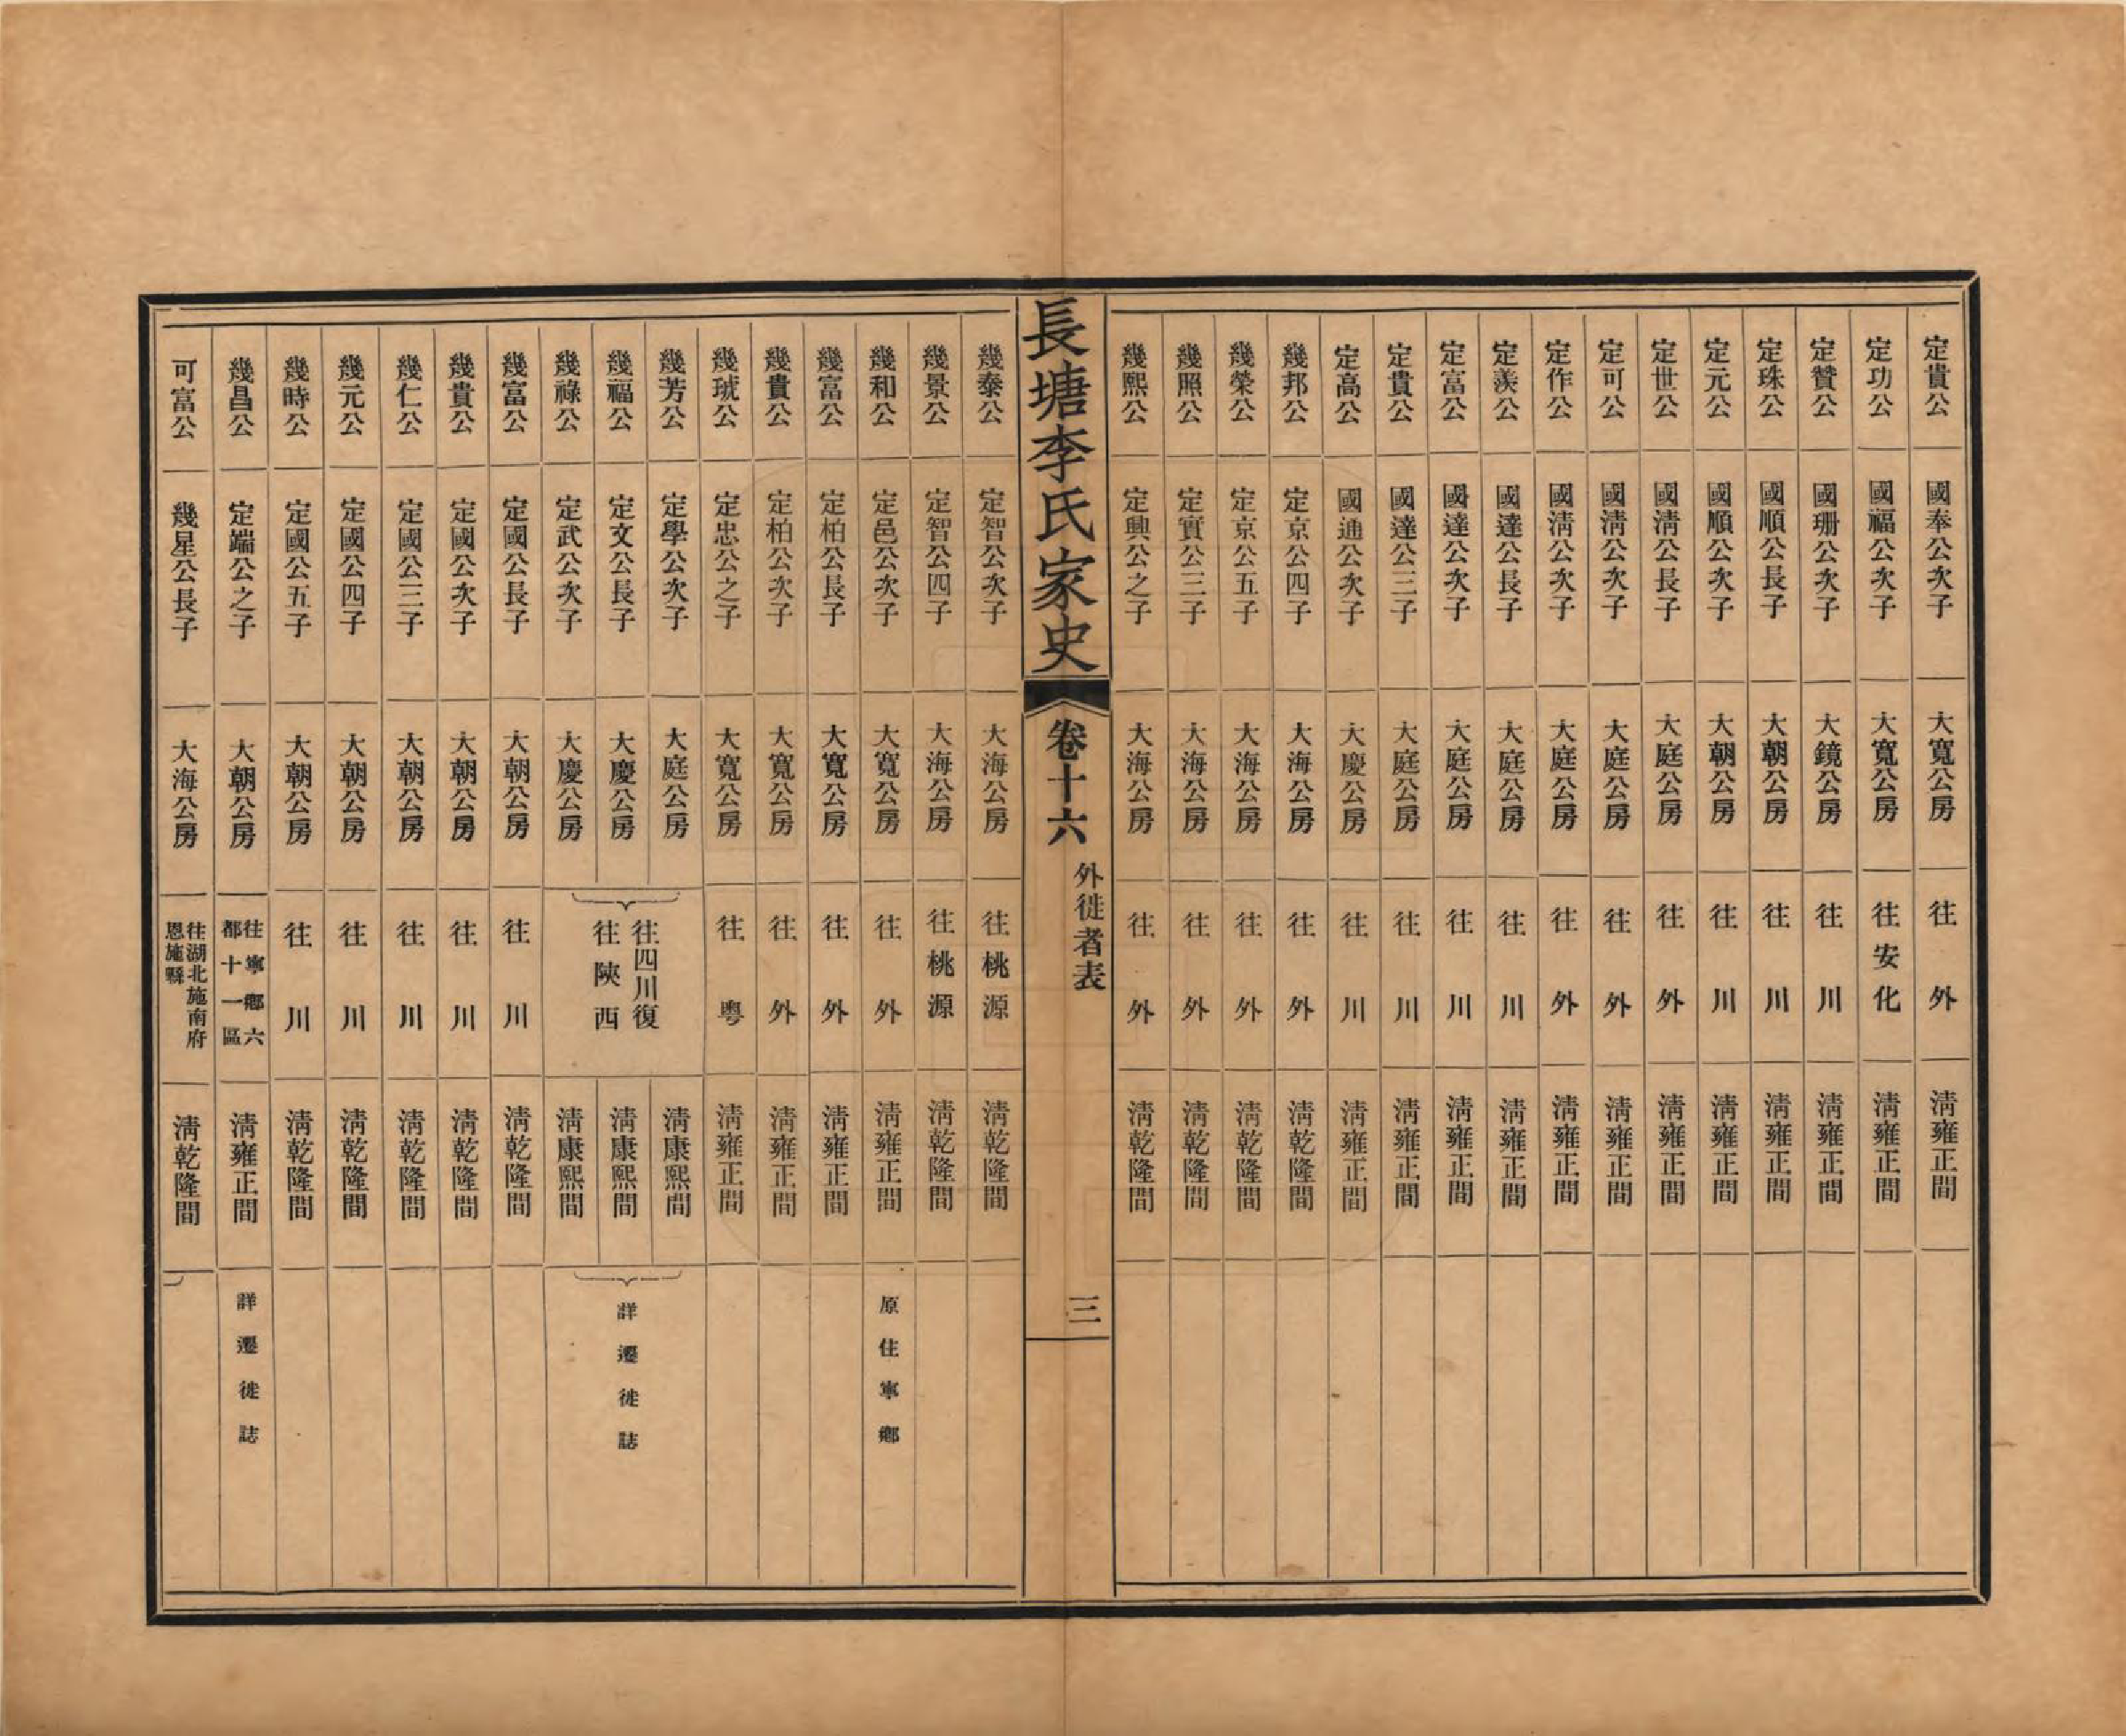 定貴公 國奉公次子 大寬公房 往外 淸雍正間
定功公 國福公次子 大寬公房 往安化 淸雍正間
定贊公 國珊公次子 大鏡公房 往川 淸雍正間
定珠公 國順公長子 大朝公房 往川 淸雍正間
定元公 國順公次子 大朝公房 往川 淸雍正間
定世公 國淸公長子 大庭公房 往外 淸雍正間
定可公 國淸公次子 大庭公房 往外 淸雍正間
定作公 國淸公次子 大庭公房 往外 淸雍正間
定羨公 國達公長子 大庭公房 往川 淸雍正間
定富公 國達公次子 大庭公房 往川 淸雍正間
定貴公 國達公三子 大庭公房 往川 淸雍正間
定高公 國通公次子 大慶公房 往川 淸雍正間
幾邦公 定京公四子 大海公房 往外 淸乾隆間
幾榮公 定京公五子 大海公房 往外 淸乾隆間
幾照公 定實公三子 大海公房 往外 淸乾隆間
幾熙公 定興公之子 大海公房 往外 淸乾隆間
長塘李氏家史 卷十六 外徙者表 三
幾泰公 定智公次子 大海公房 往桃源 淸乾隆間
幾景公 定智公四子 大海公房 往桃源 淸乾隆間
幾和公 定邑公次子 大寬公房 往外 淸雍正間 原住寧鄕
幾富公 定柏公長子 大寬公房 往外 淸雍正間
幾貴公 定柏公次子 大寬公房 往外 淸雍正間
幾琥公 定忠公之子 大寬公房 往粵 淸雍正間
幾芳公 定學公次子 大庭公房 往四川復往陝西 淸康熙間 詳遷徙誌
幾福公 定文公長子 大慶公房 淸康熙間
幾祿公 定武公次子 大慶公房 淸康熙間
幾富公 定國公長子 大朝公房 往川 淸乾隆間
幾貴公 定國公次子 大朝公房 往川 淸乾隆間
幾仁公 定國公三子 大朝公房 往川 淸乾隆間
幾元公 定國公四子 大朝公房 往川 淸乾隆間
幾時公 定國公五子 大朝公房 往川 淸乾隆間
幾昌公 定端公之子 大朝公房 往寧鄕六都十一區 淸雍正間 詳遷徙誌
可富公 幾星公長子 大海公房 往湖北施南府恩施縣 淸乾隆間